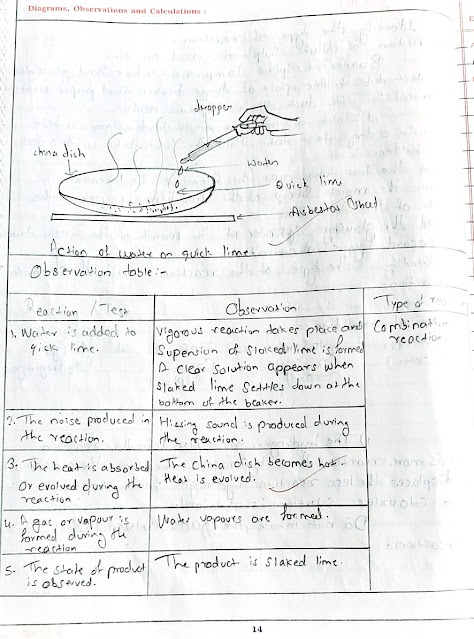 Diagrams, Observations and Calculations :
dropper
china dish
water
Quick lime
Asbestos Sheet
Action of water on quick lime
Observation table:-
Reaction / Test
Observation
Type of reac
1. Water is added to
qick lime.
Vigorous reaction takes place and
Supension of slaked lime is formed
A clear solution appears when
slaked lime settles down at the
bottom of the beaker.
Combination
reaction
2. The noise produced in
the reaction.
Hissing sound is produced during
the reaction.
3. The heat is absorbed
or evolved during the
reaction
The china dish becomes hot.
Heat is evolved.
4. A gas or vapour is
formed during the
reaction
Water vapours are formed.
5. The state of product
is observed.
The product is slaked lime.
14